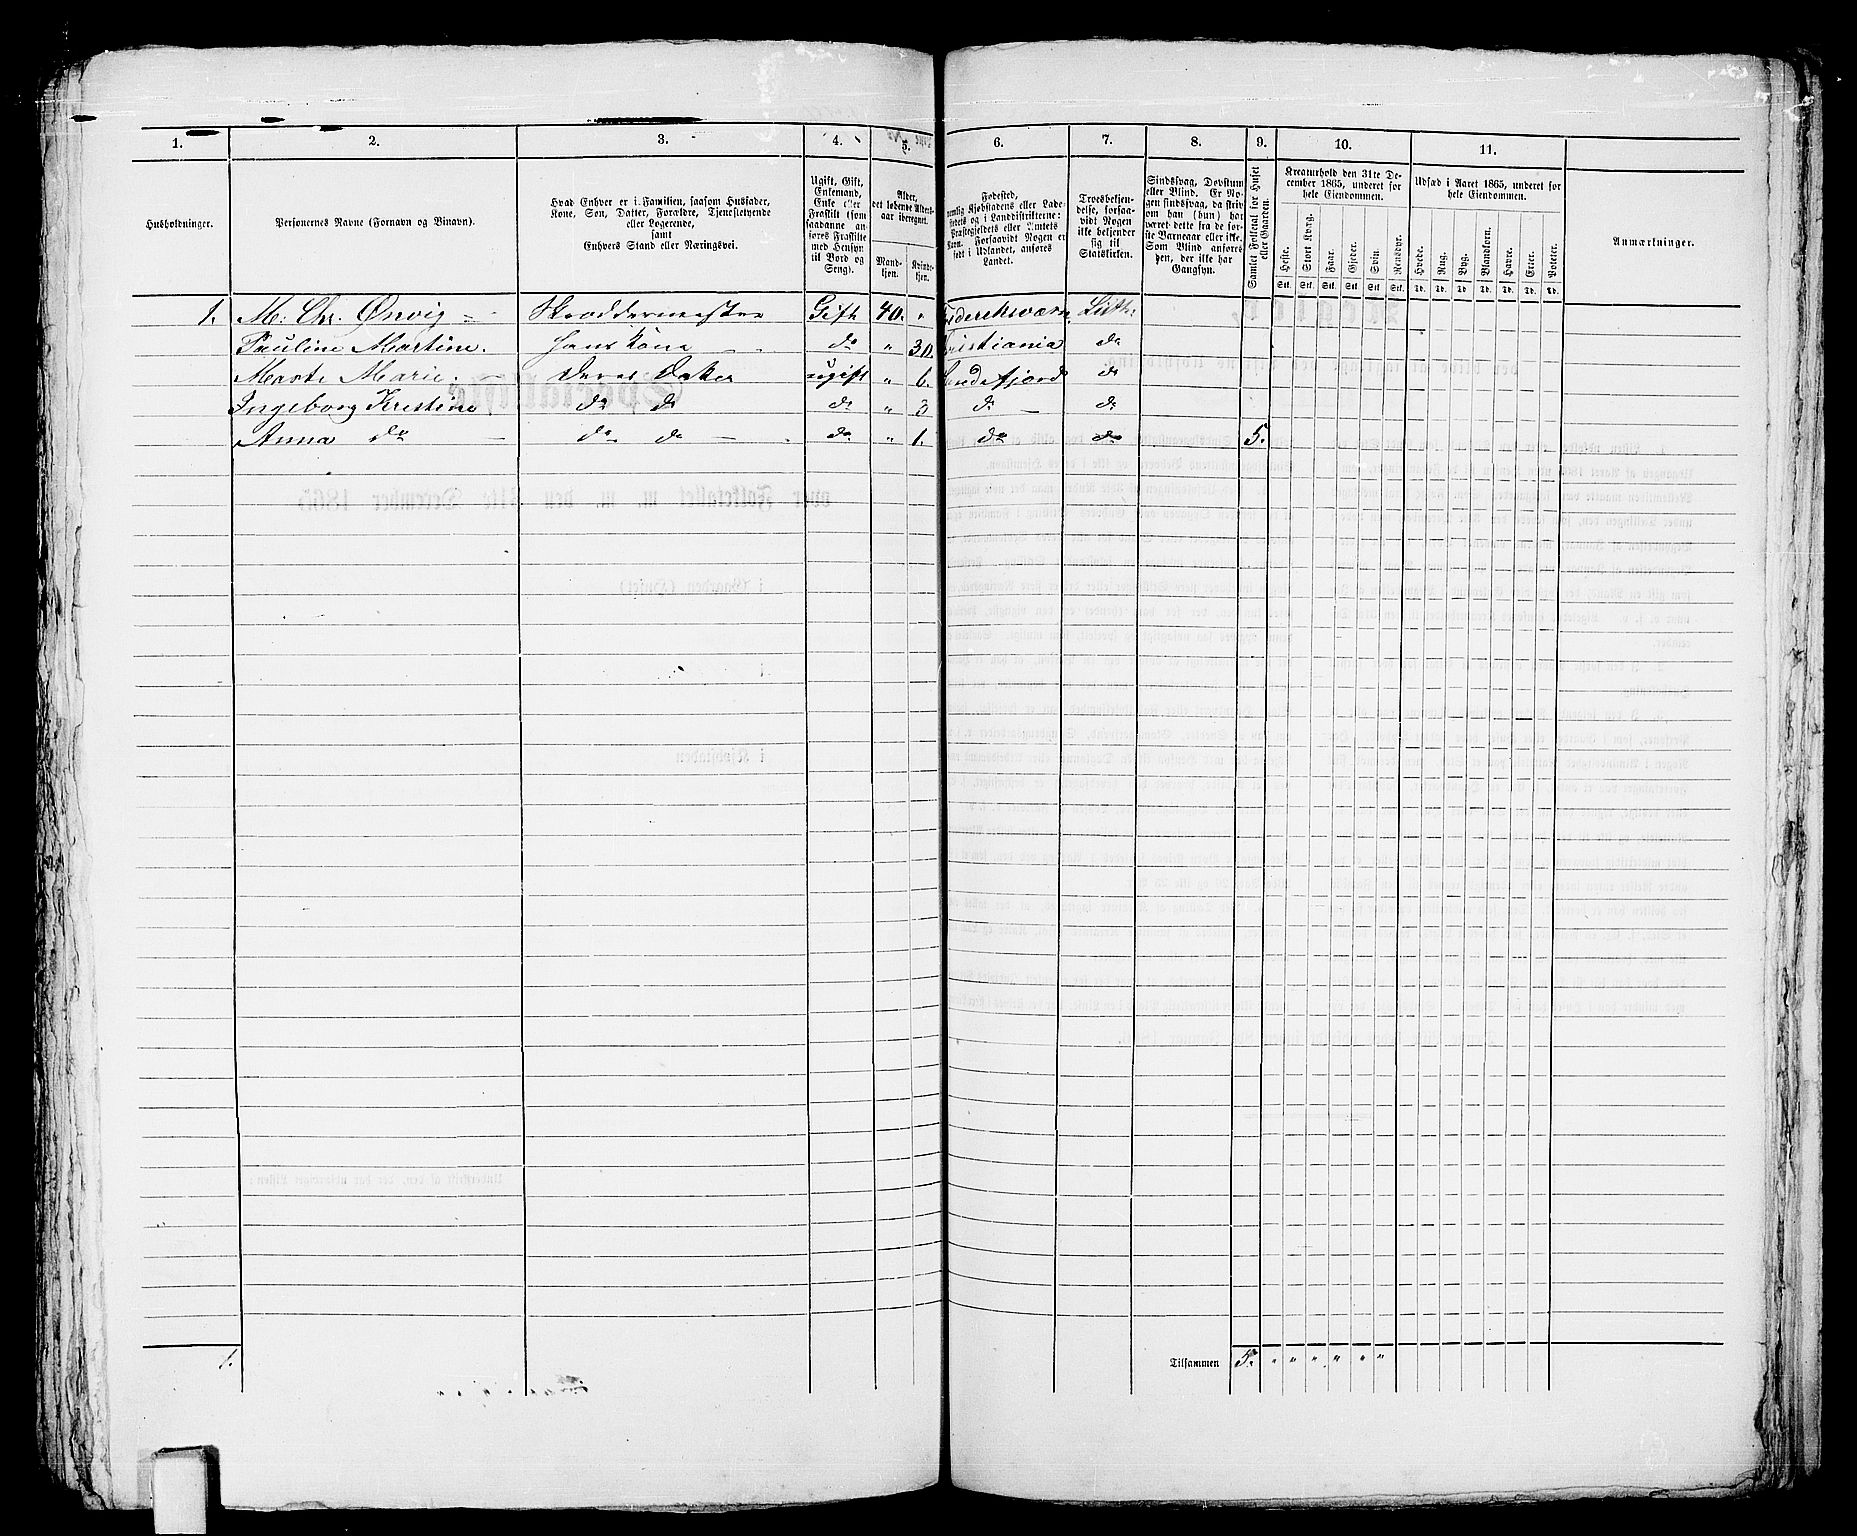 1. 2. 3. 4. 5. 6. 7. 8. 9. 10. 11.
Husholdninger.
Personernes Navne (Fornavn og Binavn).
Hvad Enhver er i Familien, saasom Husfader,
Kone, Søn, Datter, Forældre, Tjenestetyende
eller Logerende,
samt
Enhvers Stand eller Næringsvei.
Ugift, Gift,
Enkemand,
Enke eller
Fraskilt (som
saadanne an-
føres Fraskilte
med Hensyn
til Bord og
Seng).
Alder,
det løbende Alders-
aar iberegnet.
Mand-
kjøn.
Kvinde-
kjøn.
Fødested,
nemlig Kjøbstadens eller Lade-
stedets og i Landdistrikterne:
Præstegjeldets eller Amtets
Navn. Forsaavidt Nogen er
født i Udlandet, anføres
Landet.
Troesbekjen-
delse, forsaa-
vidt Nogen
ikke bekjender
sig til
Statskirken.
Sindssvag, Døvstum
eller Blind. Er No-
gen sindssvag, da skriv
om han (hun) har
været dette fra de før-
ste Barneaar eller ikke.
Som Blind anføres
den, der ikke har
Gangsyn.
Samlet Folketal for Huset
eller Gaarden.
Kreaturhold den 31te De-
cember 1865, underet for
hele Eiendommen.
Heste. Stort Kvæg. Faar. Gjeder. Svin. Rensdyr.
Stk. Stk. Stk. Stk. Stk. Stk.
Udsæd i Aaret 1865, underet for
hele Eiendommen.
Hvede. Rug. Byg. Blandkorn. Havre. Erter. Poteter.
Td. Td. Td. Td. Td. Td. Td.
Anmærkninger.
1. M. Chr. Ørvig Skræddermester Gift 40. " Frederiksværn Luth.
Pauline Martine. Hans Kone do " 30. Kristiania do
Marte Marie. Deres Dater ugift " 6. Sandefjord do
Ingeborg Kristine do do do " 3 do do
Anna do do do do " 1. do do 5.
1. Tilsammen 5. " " " " " "